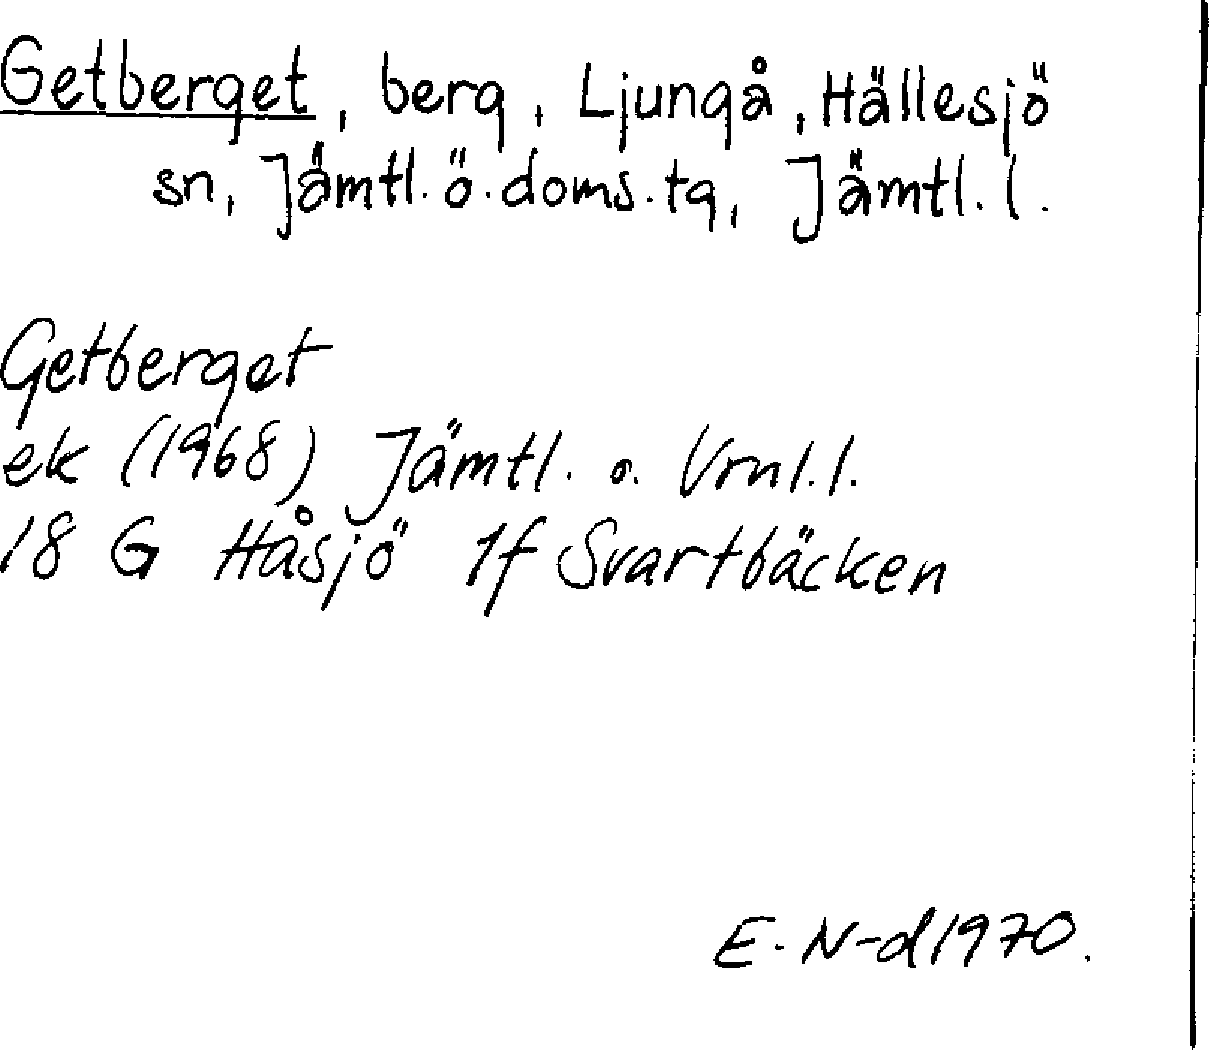 Getberget, berg, Ljungå, Hällesjö
sn, Jämtl. ö. doms. tg, Jämtl. l.
Getberget
ek (1968) Jämtl. o. Vrnl. l.
18 G Håsjö 1f Svartbäcken
E. N-d 1970.